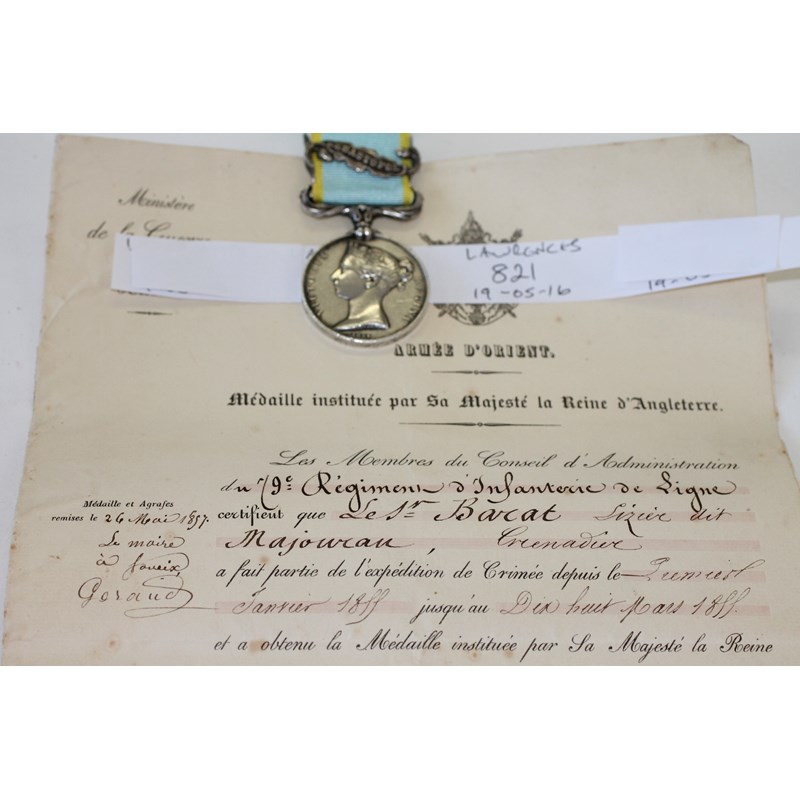 Ministère
de la Guerre
LAWRENCES
821
19-05-16
ARMÉE D'ORIENT.
Médaille instituée par Sa Majesté la Reine d'Angleterre.
Les Membres du Conseil d'Administration
du 79e Régiment d'Infanterie de Ligne
certifient que Le Sr Barat Lizier dit
Majourau, Grenadier
a fait partie de l'expédition de Crimée depuis le Premier
Janvier 1855 jusqu'au Dix huit Mars 1855.
et a obtenu la Médaille instituée par Sa Majesté la Reine
Médaille et Agrafes
remises le 26 Mai 1857.
Le maire
à Soueix,
Geraud